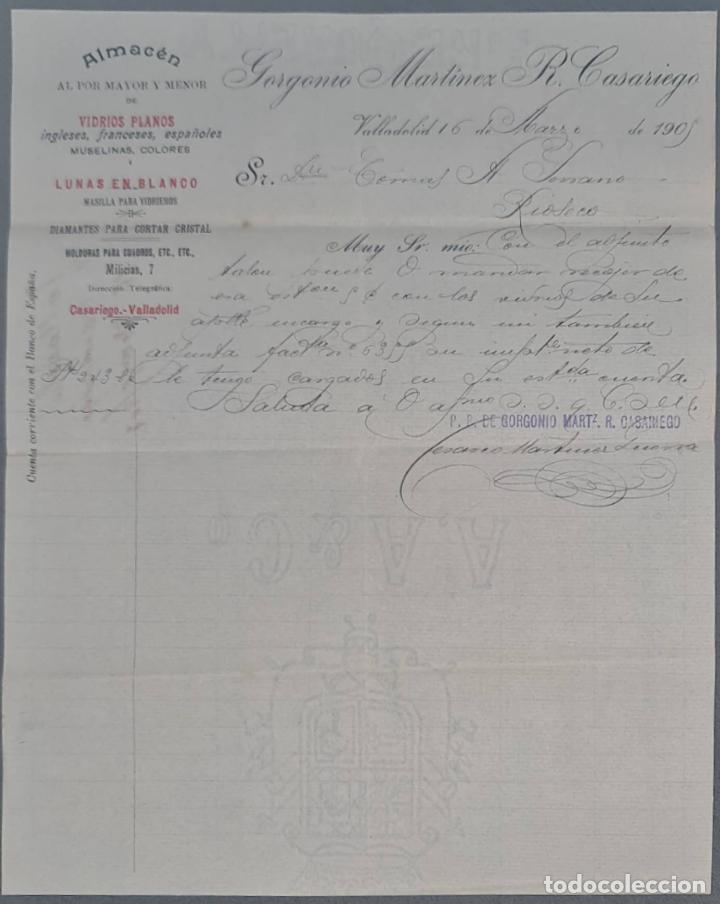 Almacén
AL POR MAYOR Y MENOR
DE
VIDRIOS PLANOS
ingleses, franceses, españoles
MUSELINAS, COLORES
Y
LUNAS EN BLANCO
MASILLA PARA VIDRIEROS
DIAMANTES PARA CORTAR CRISTAL
MOLDURAS PARA CUADROS, ETC., ETC.,
Milicias, 7
Dirección Telegráfica:
Casariego.-Valladolid
Cuenta corriente con el Banco de España.
Gorgonio Martínez R. Casariego
Valladolid 16 de Marzo de 1905
Sr. Dn Tomas A Serrano
Rioseco
Muy Sr. mio: Con el adjunto
talon puede V mandar recojer de
esa eston con los vidrios de su
encargo y segun un tambien
adjunta factra nº 635 su impte neto de
Pts 243 le tengo cargados en su estda cuenta.
Saluda á V
P. P. DE GORGONIO MARTZ. R. CASARIEGO
Cesareo Martinez Guerra
A. A. & Cº
todocoleccion.net